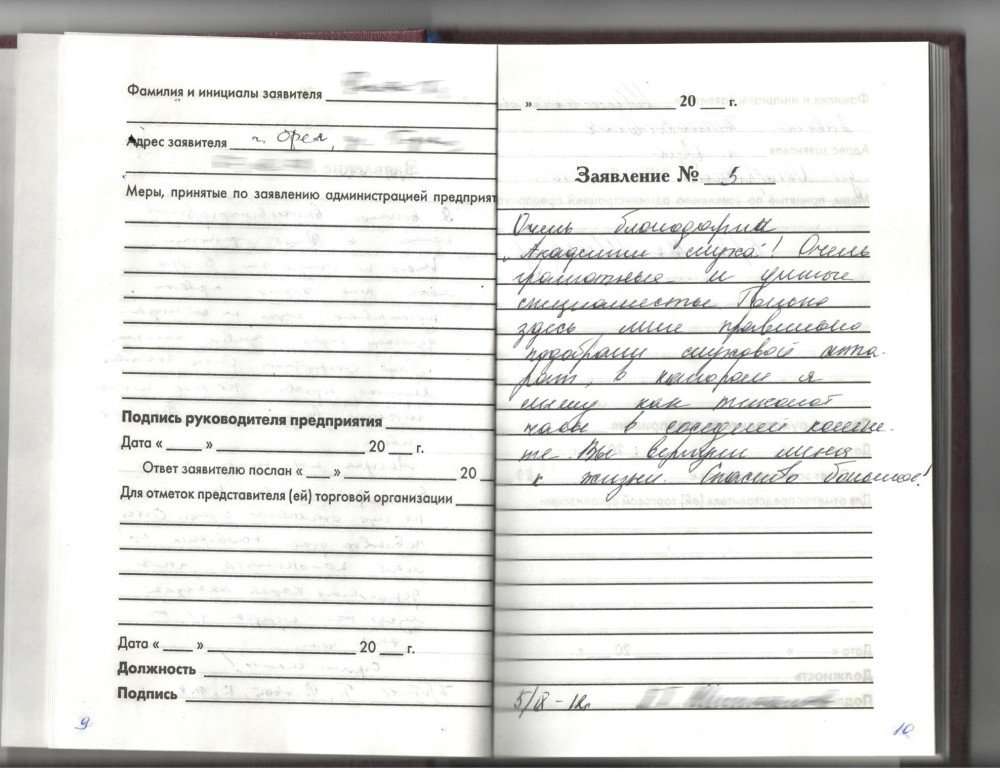 Фамилия и инициалы заявителя
Адрес заявителя г. Орел,
Меры, принятые по заявлению администрацией предприят
Подпись руководителя предприятия
Дата « » 20 г.
Ответ заявителю послан « » 20
Для отметок представителя (ей) торговой организации
Дата « » 20 г.
Должность
Подпись
9
» 20 г.
Заявление № 5
Очень благодарим
„Академии слуха"! Очень
грамотные и умные
специалисты. Только
здесь мне правильно
подобрали слуховой аппа-
рат, в котором я
слышу как тикают
часы в соседней комна-
те. Вы вернули меня
к жизни. Спасибо большое!
5/IX – 12г
10